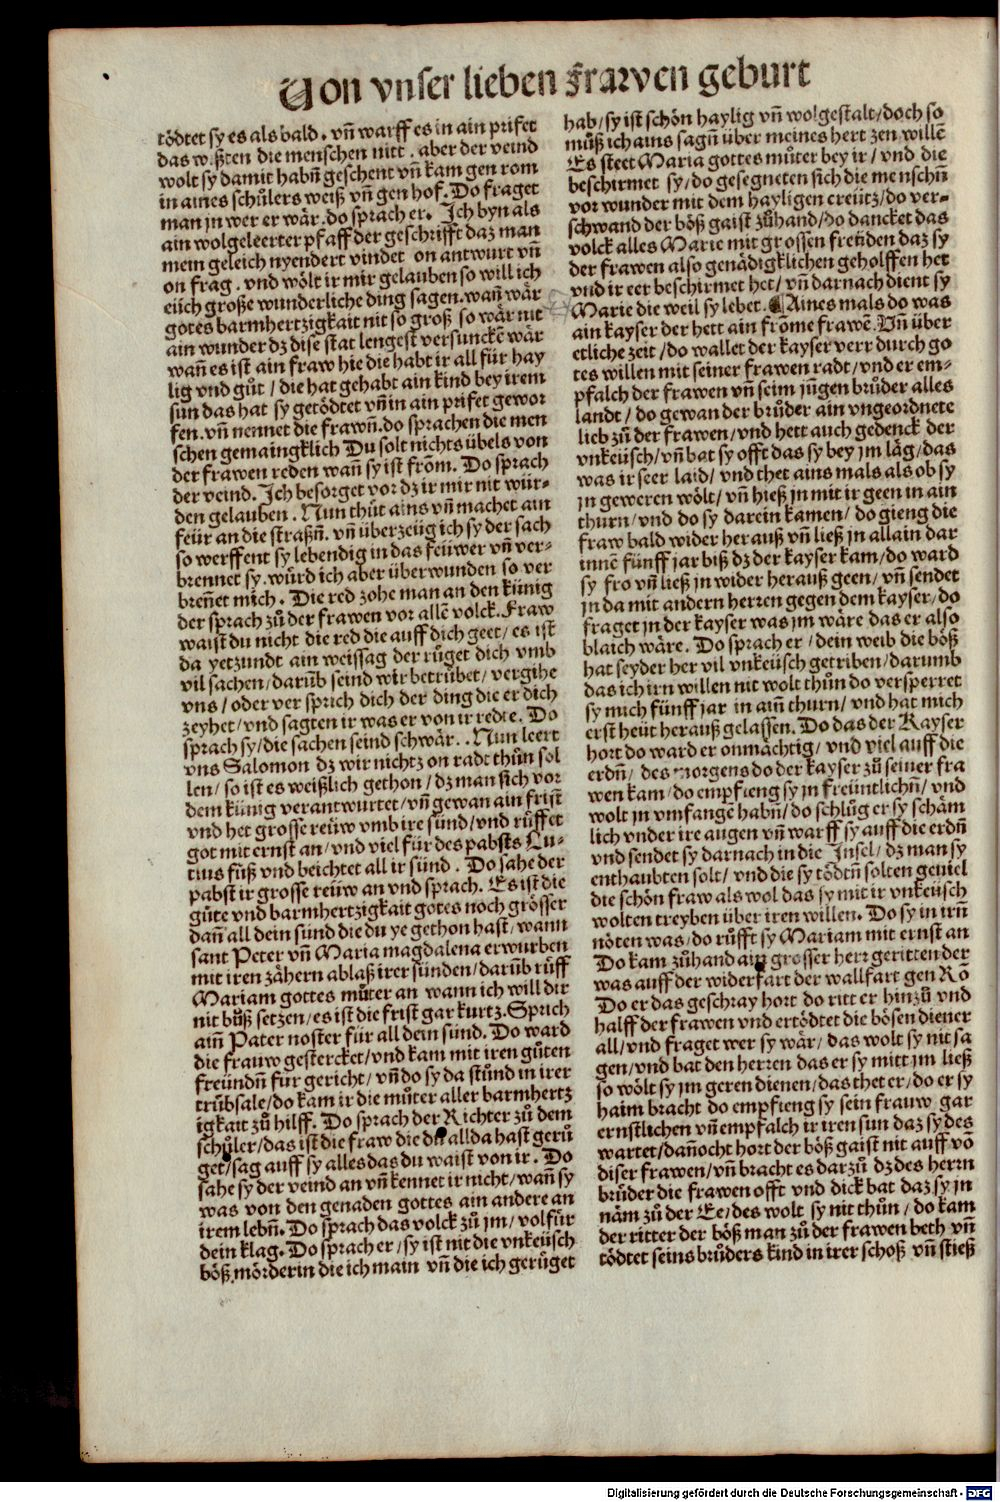 Von vnser lieben frawen geburt
tödtet sy es als bald. vñ warff es in ain prifet
das wißten die menschen nitt. aber der veind
wolt sy damit habñ geschent vñ kam gen rom
in aines schůlers weiß vñ gen hof. Do fraget
man jn wer er wär. do sprach er. Ich byn als
ain wolgeleerter pfaff der geschrifft daz man
mein geleich nyendert vindet on antwurt vñ
on frag. vnd wölt ir mir gelauben so will ich
eüch große wunderliche ding sagen. wañ wär
gotes barmhertzigkait nit so groß so wär nit
ain wunder dz dise stat lengest versunckē wär
wañ es ist ain fraw hie die habt ir all für hay
lig vnd gůt / die hat gehabt ain kind bey irem
sun das hat sy getödtet vñ in ain prifet gewor
fen. vñ nennet die frawñ. do sprachen die men
schen gemaingklich Du solt nichts übels von
der frawen reden wañ sy ist from. Do sprach
der veind. Ich besorget vor dz ir mir nit wür-
den gelauben. Nun thůt ains vñ machet ain
feür an die straßñ. vñ überzeüg ich sy der sach
so werffent sy lebendig in das feüwer vñ ver-
brennet sy. würd ich aber überwunden so ver
breñet mich. Die red zohe man an den künig
der sprach zů der frawen vor allē volck. Fraw
waist du nicht die red die auff dich geet / es ist
da yetzundt ain weissag der rüget dich vmb
vil sachen / darūb seind wir betrübet / vergihe
vns / oder ver sprich dich der ding die er dich
zeyhet / vnd sagten ir was er von ir redte. Do
sprach sy / die sachen seind schwär.. Nun leert
vns Salomon dz wir nichtz on radt thůn sol
len / so ist es weißlich gethon / dz man sich vor
dem künig verantwurtet / vñ gewan ain frist
vnd het grosse reüw vmb ire sünd / vnd růffet
got mit ernst an / vnd viel für des pabsts Lu-
tius fůß vnd beichtet all ir sünd. Do sahe der
pabst ir grosse reüw an vnd sprach. Es ist die
güte vnd barmhertzigkait gotes noch grösser
dañ all dein sünd die du ye gethon hast / wann
sant Peter vñ Maria magdalena erwurben
mit iren zähern ablaß irer sünden / darūb růff
Mariam gottes můter an wann ich will dir
nit bůß setzen / es ist die frist gar kurtz. Sprich
aiñ Pater noster für all dein sünd. Do ward
die frauw gestercket / vnd kam mit iren gůten
freündñ für gericht / vñ do sy da stůnd in irer
trübsale / do kam ir die můter aller barmhertz
igkait zů hilff. Do sprach der Richter zů dem
schůler / das ist die fraw die du allda hast gerü
get / sag auff sy alles das du waist von ir. Do
sahe sy der veind an vñ kennet ir nicht / wañ sy
was von den genaden gottes ain andere an
irem lebñ. Do sprach das volck zů jm / volfür
dein klag. Do sprach er / sy ist nit die vnkeüsch
böß mörderin die ich main vñ die ich gerüget
hab / sy ist schön haylig vñ wolgestalt / doch so
můß ich ains sagñ über meines hertzen willē
Es steet Maria gottes můter bey ir / vnd die
beschirmet sy / do gesegneten sich die menschñ
vor wunder mit dem hayligen creütz / do ver-
schwand der böß gaist zůhand / do dancket das
volck alles Marie mit grossen freüden daz sy
der frawen also genädigklichen geholffen het
vnd ir eer beschirmet het / vñ darnach dient sy
Marie die weil sy lebet. Aines mals do was
ain kayser der hett ain frōme frawē. Vñ über
etliche zeit / do wallet der kayser verr durch go
tes willen mit seiner frawen radt / vnd er em-
pfalch der frawen vñ seim jüngen brůder alles
landt / do gewan der brůder ain vngeordnete
lieb zů der frawen / vnd hett auch gedenck der
vnkeüsch / vñ bat sy offt das sy bey jm läg / das
was ir seer laid / vnd thet ains mals als ob sy
jn geweren wölt / vñ hieß jn mit ir geen in ain
thurn / vnd do sy darein kamen / do gieng die
fraw bald wider herauß vñ ließ jn allain dar
innē fünff jar biß dz der kayser kam / do ward
sy fro vñ ließ jn wider herauß geen / vñ sendet
jn da mit andern herren gegen dem kayser / do
fraget jn der kayser was jm wäre das er also
blaich wäre. Do sprach er / dein weib die böß
hat seyder her vil vnkeüsch getriben / darumb
das ich irn willen nit wolt thůn do versperret
sy mich fünff jar in aiñ thurn / vnd hat mich
erst heüt herauß gelassen. Do das der Kayser
hort do ward er onmächtig / vnd viel auff die
erdñ / des morgens do der kayser zů seiner fra
wen kam / do empfieng sy jn freüntlichñ / vnd
wolt jn vmfangē habñ / do schlůg er sy schäm
lich vnder ire augen vñ warff sy auff die erdñ
vnd sendet sy darnach in die Insel / dz man sy
enthaubten solt / vnd die sy tödtñ solten geuiel
die schön fraw als wol das sy mit ir vnkeüsch
wolten treyben über iren willen. Do sy in irñ
nöten was / do růfft sy Mariam mit ernst an
Do kam zůhand ain grosser herr geritten der
was auff der widerfart der wallfart gen Ro
Do er das geschray hort do ritt er hinzů vnd
halff der frawen vnd ertödtet die bösen diener
all / vnd fraget wer sy wär / das wolt sy nit sa
gen / vnd bat den herren das er sy mitt jm ließ
so wölt sy jm geren dienen / das thet er / do er sy
haim bracht do empfieng sy sein frauw gar
ernstlichen vñ empfalch ir iren sun daz sy des
wartet / dañocht hort der böß gaist nit auff võ
diser frawen / vñ bracht es darzů dz des herrn
brůder die frawen offt vnd dick bat daz sy jn
näm zů der Ee / des wolt sy nit thůn / do kam
der ritter der böß man zů der frawen beth vñ
tödtet seins brůders kind in irer schoß vñ stieß
Digitalisierung gefördert durch die Deutsche Forschungsgemeinschaft - DFG